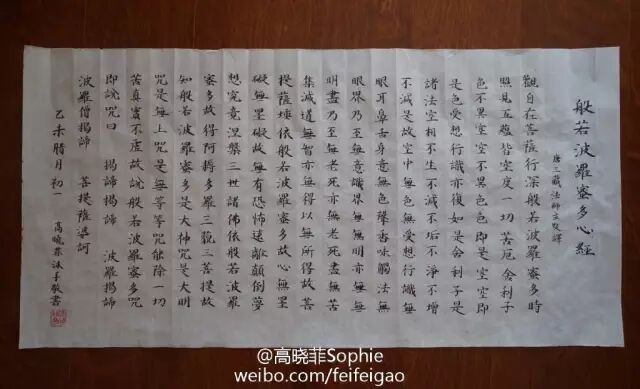 般若波羅蜜多心經
唐三藏法師玄奘譯
觀自在菩薩行深般若波羅蜜多時
照見五蘊皆空度一切苦厄舍利子
色不異空空不異色色即是空空即
是色受想行識亦復如是舍利子是
諸法空相不生不滅不垢不淨不增
不減是故空中無色無受想行識無
眼耳鼻舌身意無色聲香味觸法無
眼界乃至無意識界無無明亦無無
明盡乃至無老死亦無老死盡無苦
集滅道無智亦無得以無所得故菩
提薩埵依般若波羅蜜多故心無罣
礙無罣礙故無有恐怖遠離顛倒夢
想究竟涅槃三世諸佛依般若波羅
蜜多故得阿耨多羅三藐三菩提故
知般若波羅蜜多是大神咒是大明
咒是無上咒是無等等咒能除一切
苦真實不虛故說般若波羅蜜多咒
即說咒曰 揭諦揭諦 波羅揭諦
波羅僧揭諦 菩提薩婆訶
乙未腊月初一 高曉菲沐手敬書
@高晓菲Sophie
weibo.com/feifeigao